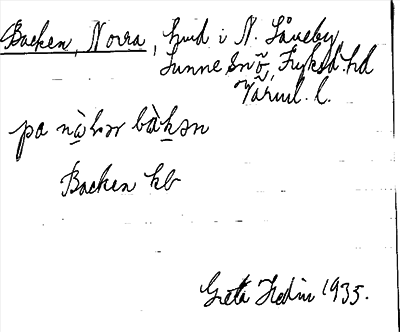 Backen, Norra, hmd i N. Låneby
Sunne sn, Fryksd. hd
Värml. l.
på nὼrər bàkən
Backen kb
Greta Hedin 1935.